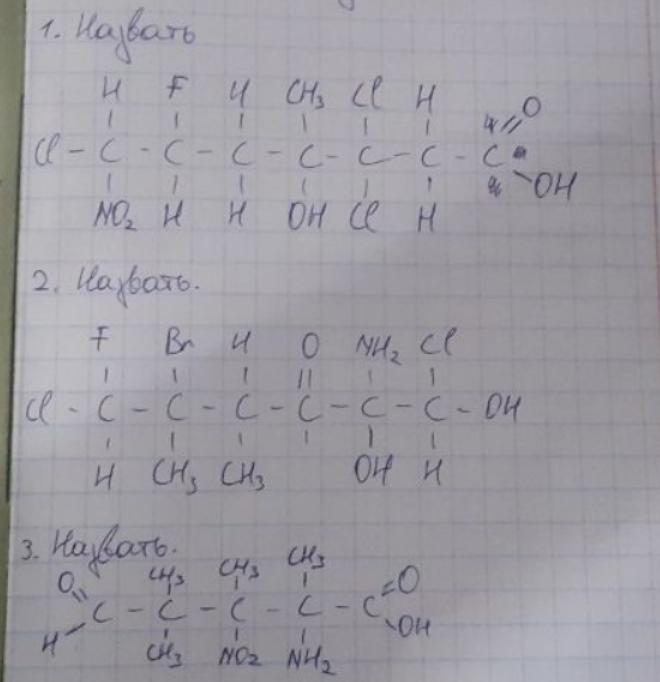 1. Назвать
H F H CH₃ Cl H O
Cl - C - C - C - C - C - C - C
NO₂ H H OH Cl H OH
2. Назвать.
F Br H O NH₂ Cl
Cl - C - C - C - C - C - C - OH
H CH₃ CH₃ OH H
3. Назвать.
O CH₃ CH₃ CH₃ O
C - C - C - C - C
H CH₃ NO₂ NH₂ OH